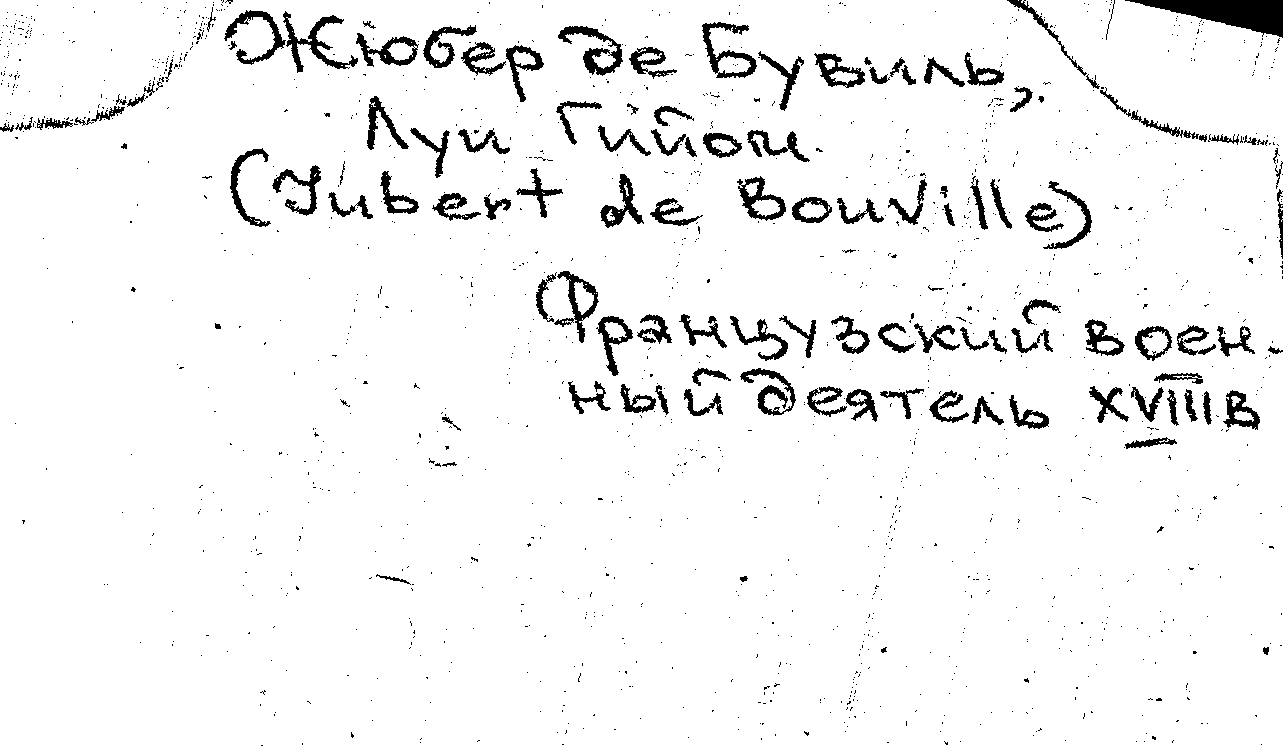 Жюбер де Бувиль,
Луи Гийом
(Jubert de Bouville)
Французский воен-
ный деятель XVIII в